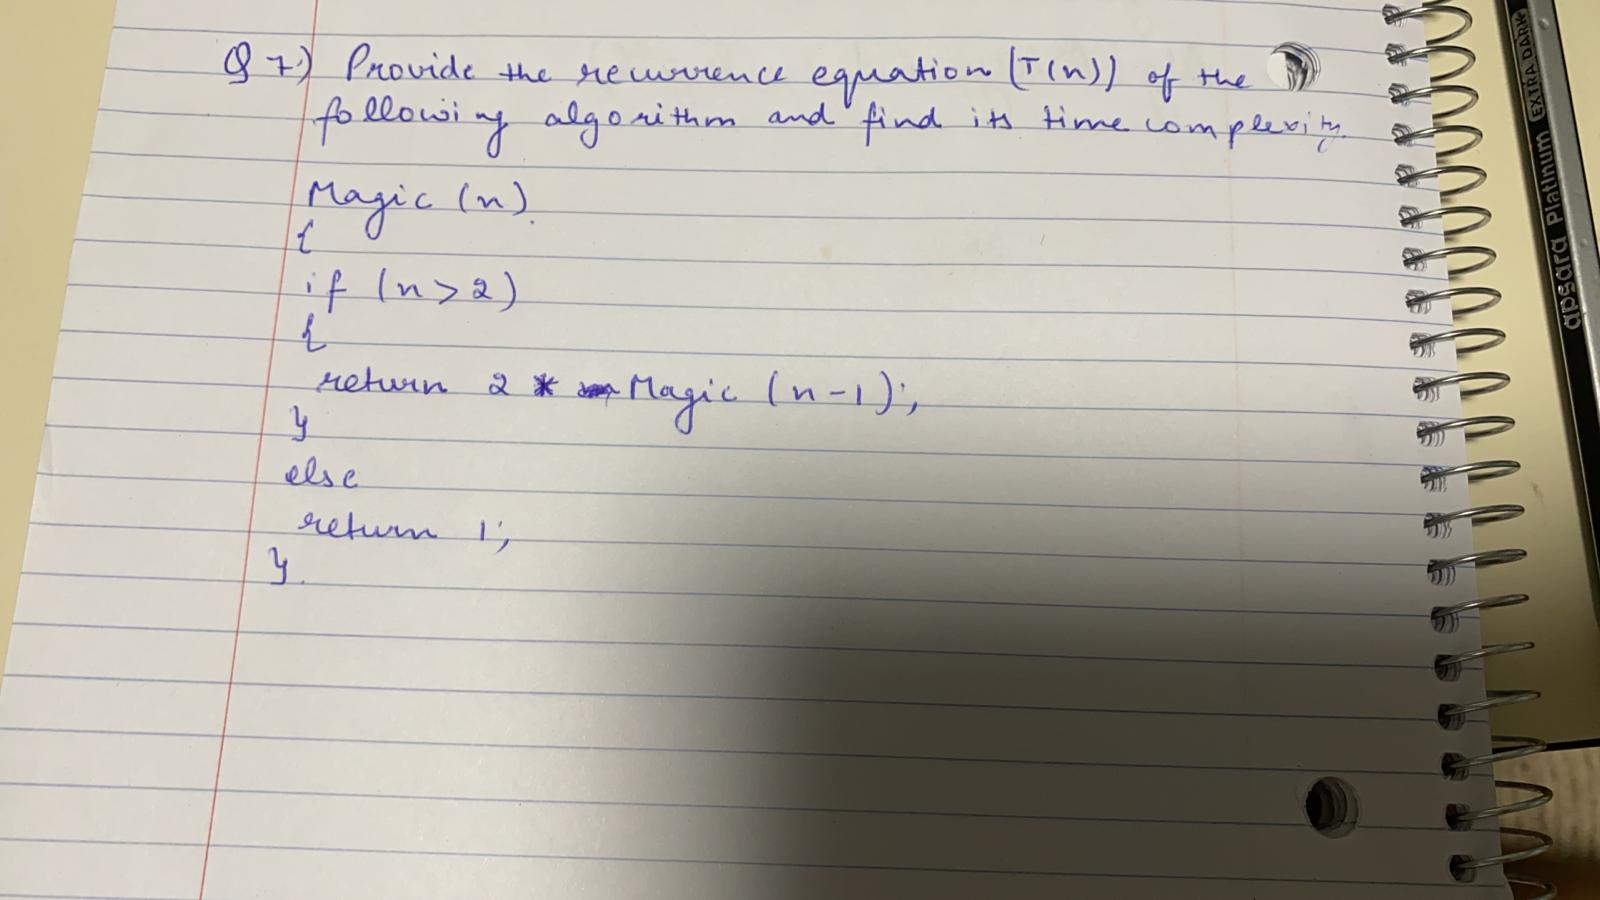 Q 7.) Provide the recurrence equation (T(n)) of the
following algorithm and find its time complexity.
Magic (n).
{
if (n>2)
{
return 2 * Magic (n-1);
}
else
return 1;
}.
apsara Platinum EXTRA DARK